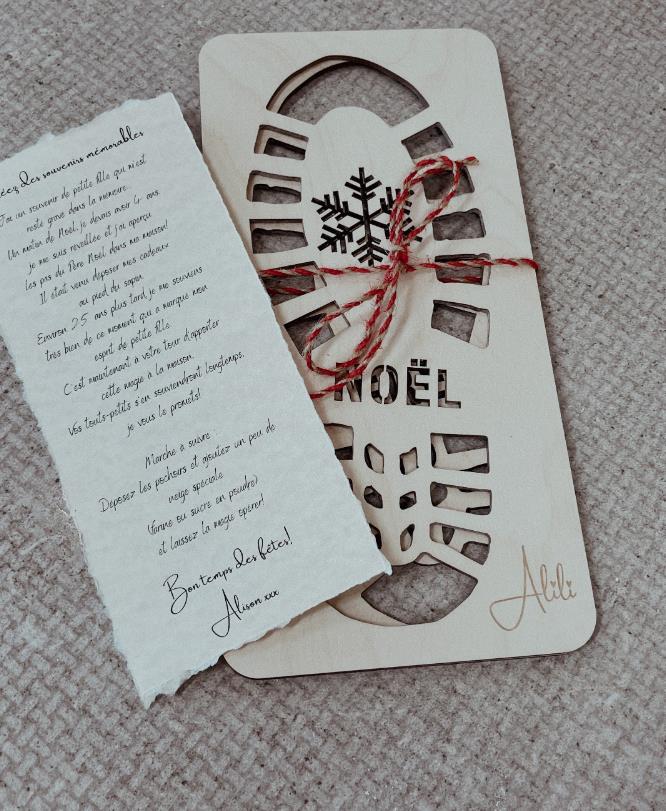 des souvenirs mémorables
J'ai un souvenir de petite fille qui m'est
resté gravé dans la mémoire...
Un matin de Noël, je devais avoir 4 ans
je me suis réveillée et j'ai aperçu
les pas du Père Noël dans ma maison!
Il était venu déposer mes cadeaux
au pied du sapin.
Environ 25 ans plus tard je me souviens
très bien de ce moment qui a marqué mon
esprit de petite fille.
C'est maintenant à votre tour d'apporter
cette magie à la maison.
Vos touts-petits s'en souviendront longtemps,
je vous le promets!
Marche à suivre:
Déposez les pochoirs et ajoutez un peu de
neige spéciale
(farine ou sucre en poudre)
et laissez la magie opérer!
Bon temps des fêtes!
Alison xxx
NOËL
Alili